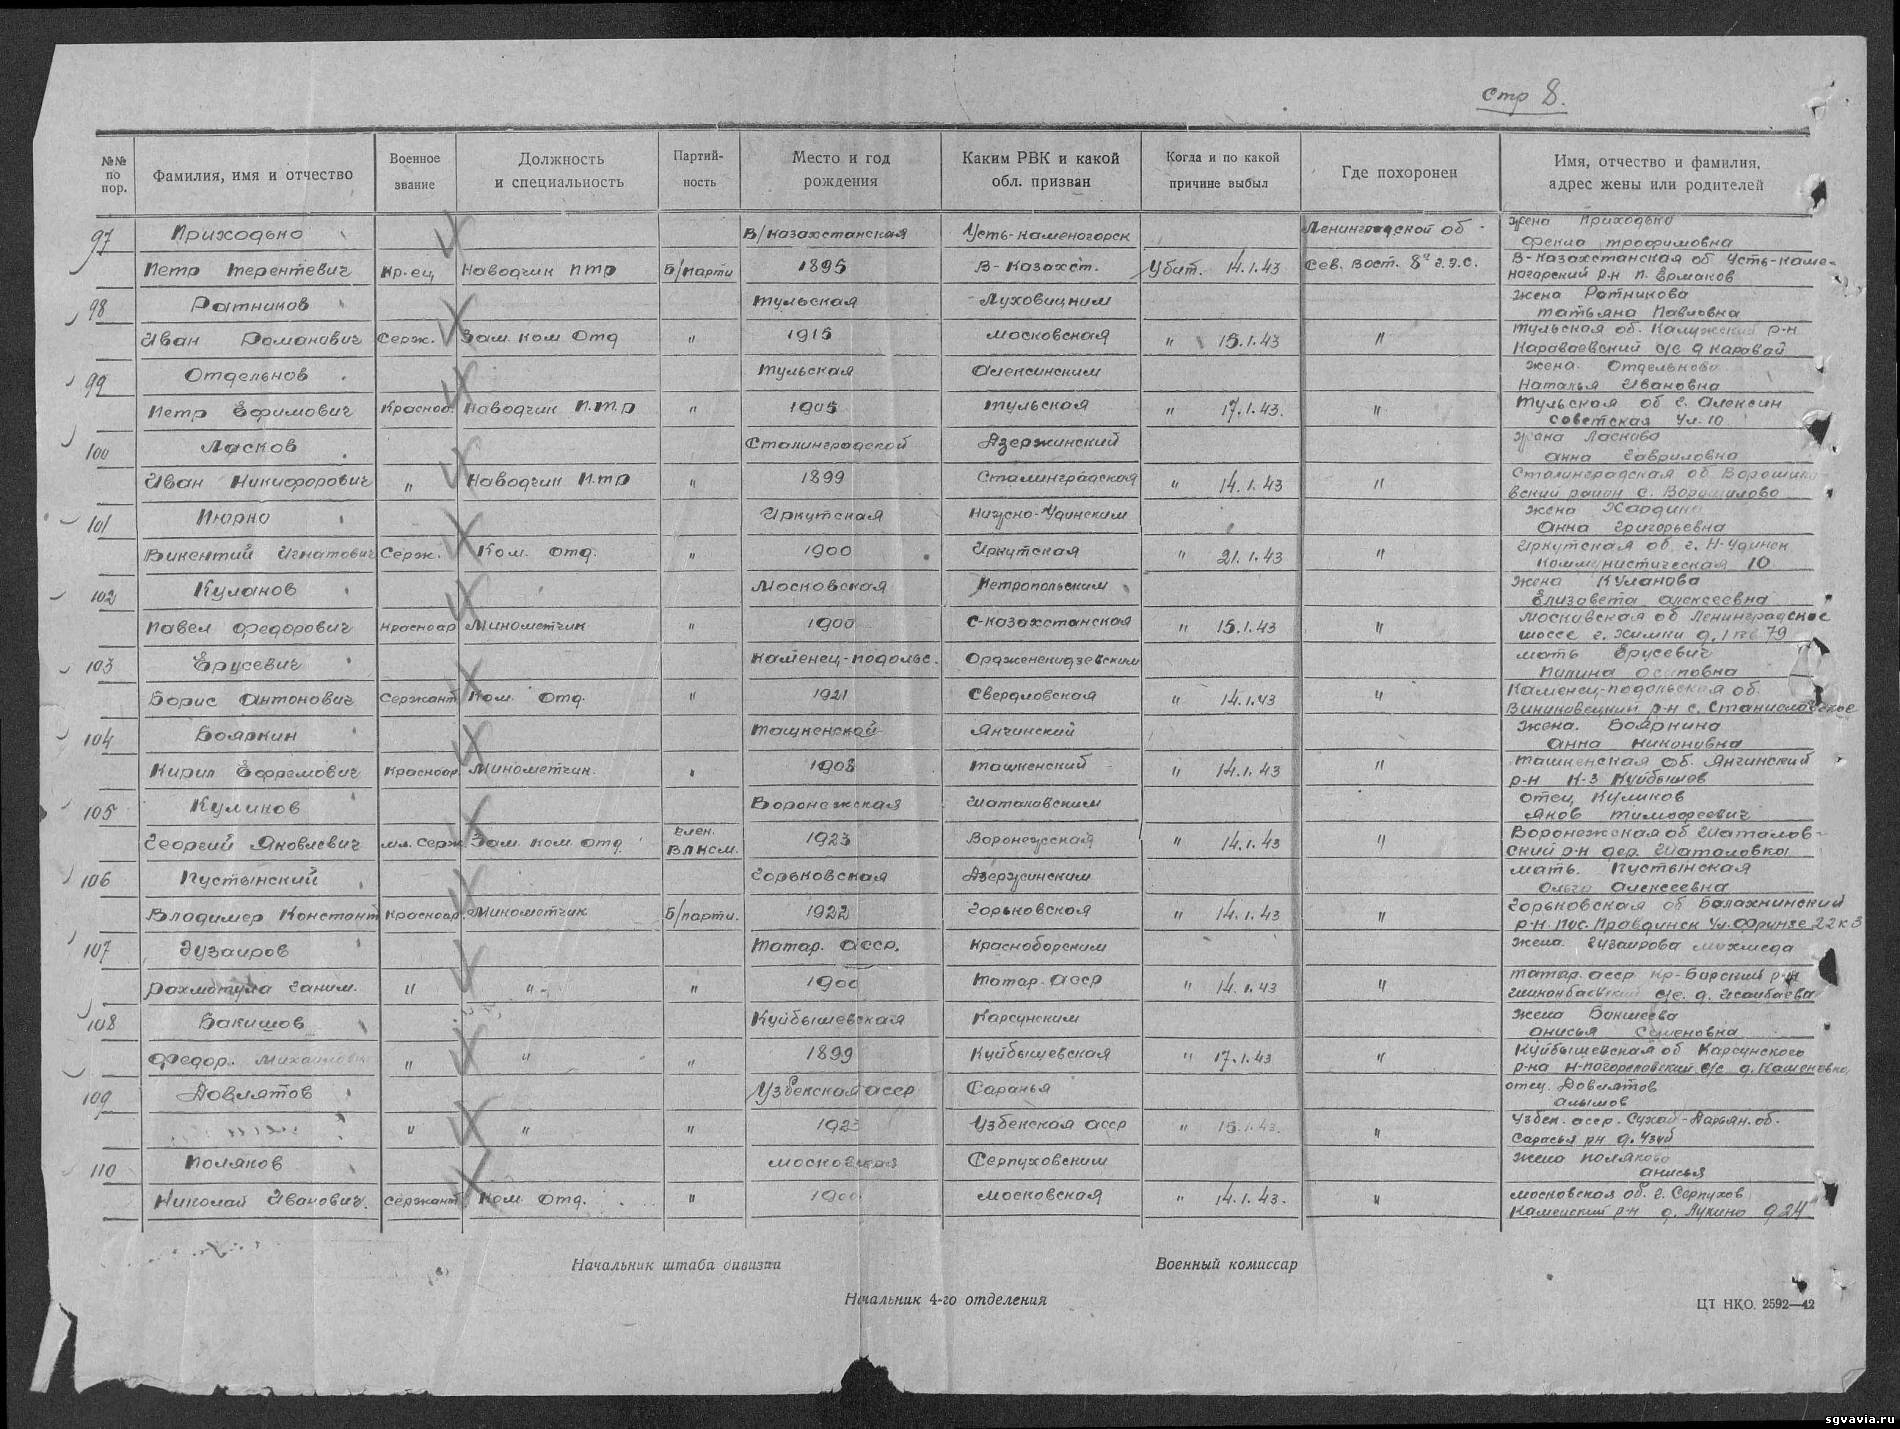 стр 8.
№№ по пор. Фамилия, имя и отчество Военное звание Должность и специальность Партий-ность Место и год рождения Каким РВК и какой обл. призван Когда и по какой причине выбыл Где похоронен Имя, отчество и фамилия, адрес жены или родителей
97 Приходько В/казахстанская Усть-каменогорск Ленинградской об жена Приходько
Фекла трофимовна
Петр терентевич Кр-ец Наводчик птр Б/парти 1895 В-Казахст. Убит. 14.1.43 Сев. Вост. 8й г.э.с. В-Казахстанская об Усть-каме-
ногорский р-н п. Ермаков
98 Ратников тульская Луховицким жена Ратникова
татьяна Павловна
Иван Романович Серж. Зам. ком Отд " 1915 московская " 15.1.43 " тульская об. Калужский р-н
Караваевский с/с д каравай
99 Отдельнов тульская Алексинским жена Отдельнова
Наталья Ивановна
Петр Ефимович Красноа. Наводчик П.т.р " 1905 тульская " 17.1.43. " тульская об г. Алексин
Советская Ул. 10
100 Ласков Сталинградской Дзержинский жена Ласкова
анна Гавриловна
Иван Никифорович " Наводчик П.тр " 1899 Сталинградская " 14.1.43 " Сталинградская об
вский район с. Ворошилово
101 Иркутская Нижно-Удинским жена
Анна Григорьевна
Викентий Игнатович Серж. Ком. Отд. " 1900 Иркутская " 21.1.43 " Иркутская об. г. Н-Удинск
Коммунистическая 10
102 Куланов Московская Петропольским жена Куланова
Елизовета алексеевна
Павел Федорович Красноар Минометчик " 1900 С-казахстанская " 15.1.43 " московская об Ленинградское
шоссе г. Химки д. 1 кв 79
103 Ерусевич каменец-подольс. Ордженекидзевским мать Ерусевич
Осиповна
Борис Антонович Сержант Ком. Отд. " 1921 Свердловская " 14.1.43 " Каменец-подольская об.
Виниковецкий р-н с. Станиславское
104 Бояркин Ташкенской Янгинский Жена. Бояркина
анна никоновна
Кирил Ефремович Красноар. Минометчик. " 1908 Ташкенский " 14.1.43 " Ташкенская об. Янгинский
р-н К-з Куйбышев
105 Куликов Воронежская Шаталовским отец Куликов
Яков тимофеевич
Георгий Яковлевич мл. Серж Зам. ком отд. член. ВЛКСМ. 1923 Воронежсская " 14.1.43 " Воронежская об Шаталов-
ский р-н дер. Шаталовка
106 Пустынский Горьковская Дзержинским мать. Пустынская
Ольга Алексеевна
Владимер Констонт Красноар. Минометчик Б/парти. 1922 Горьковская " 14.1.43 " Горьковская об Балахнинский
р-н. Пос. Правдинск Ул. Фрунзе 22 к 3
107 Гузаиров татар. асср. Красноборским жена. Гузаирова
Рахматула Ганим. " " " 1900 Татар. асср " 14.1.43 " татар. асср кр-Борский р-н
с/с. д. Исанбаева
108 Бакишов Куйбышевская Карсунским жена Бакшеева
анисья Семеновна
Федор. " " " 1899 Куйбышевская " 17.1.43 " Куйбышевская об Карсунского
р-на Н-погореловский с/с д. Каменовка,
109 Довлятов Узбекская асср Саранья отец. Довлятов
алымов
" " " 1923 Узбекская асср " 15.1.43. " Узбек. асср.
р-н д.
110 Поляков московская Серпуховским жена полякова
анисья
Николай Иванович. Сержант Ком. Отд. " московская " 14.1.43. " московская об. г. Серпухов
р-н д. Лукино д 24
Начальник штаба дивизии Военный комиссар
Начальник 4-го отделения
ЦТ НКО. 2592—42
sgvavia.ru